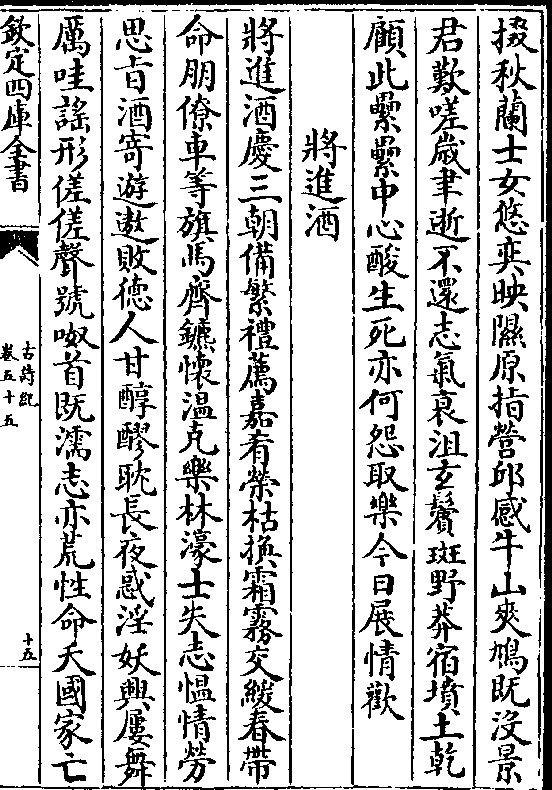 掇秋蘭士女悠奕映隰原指營邱感牛山爽鳩既没景
君歎嗟歲聿逝不還志氣衰沮玄鬢斑野莽宿墳土乾
顧此纍纍中心酸生死亦何怨取樂今日展情歡
將進酒
將進酒慶三朝備繁禮薦嘉肴榮枯換霜霧交緩春帶
命朋僚車等旗馬齊鑣懷温克樂林濠士失志愠情勞
思旨酒寄遊遨敗德人甘醇醪耽長夜惑淫妖興屢舞
厲哇謡形傞傞聲號呶首既濡志亦荒性命夭國家亡
欽定四庫全書
古詩紀
卷五十五
十五